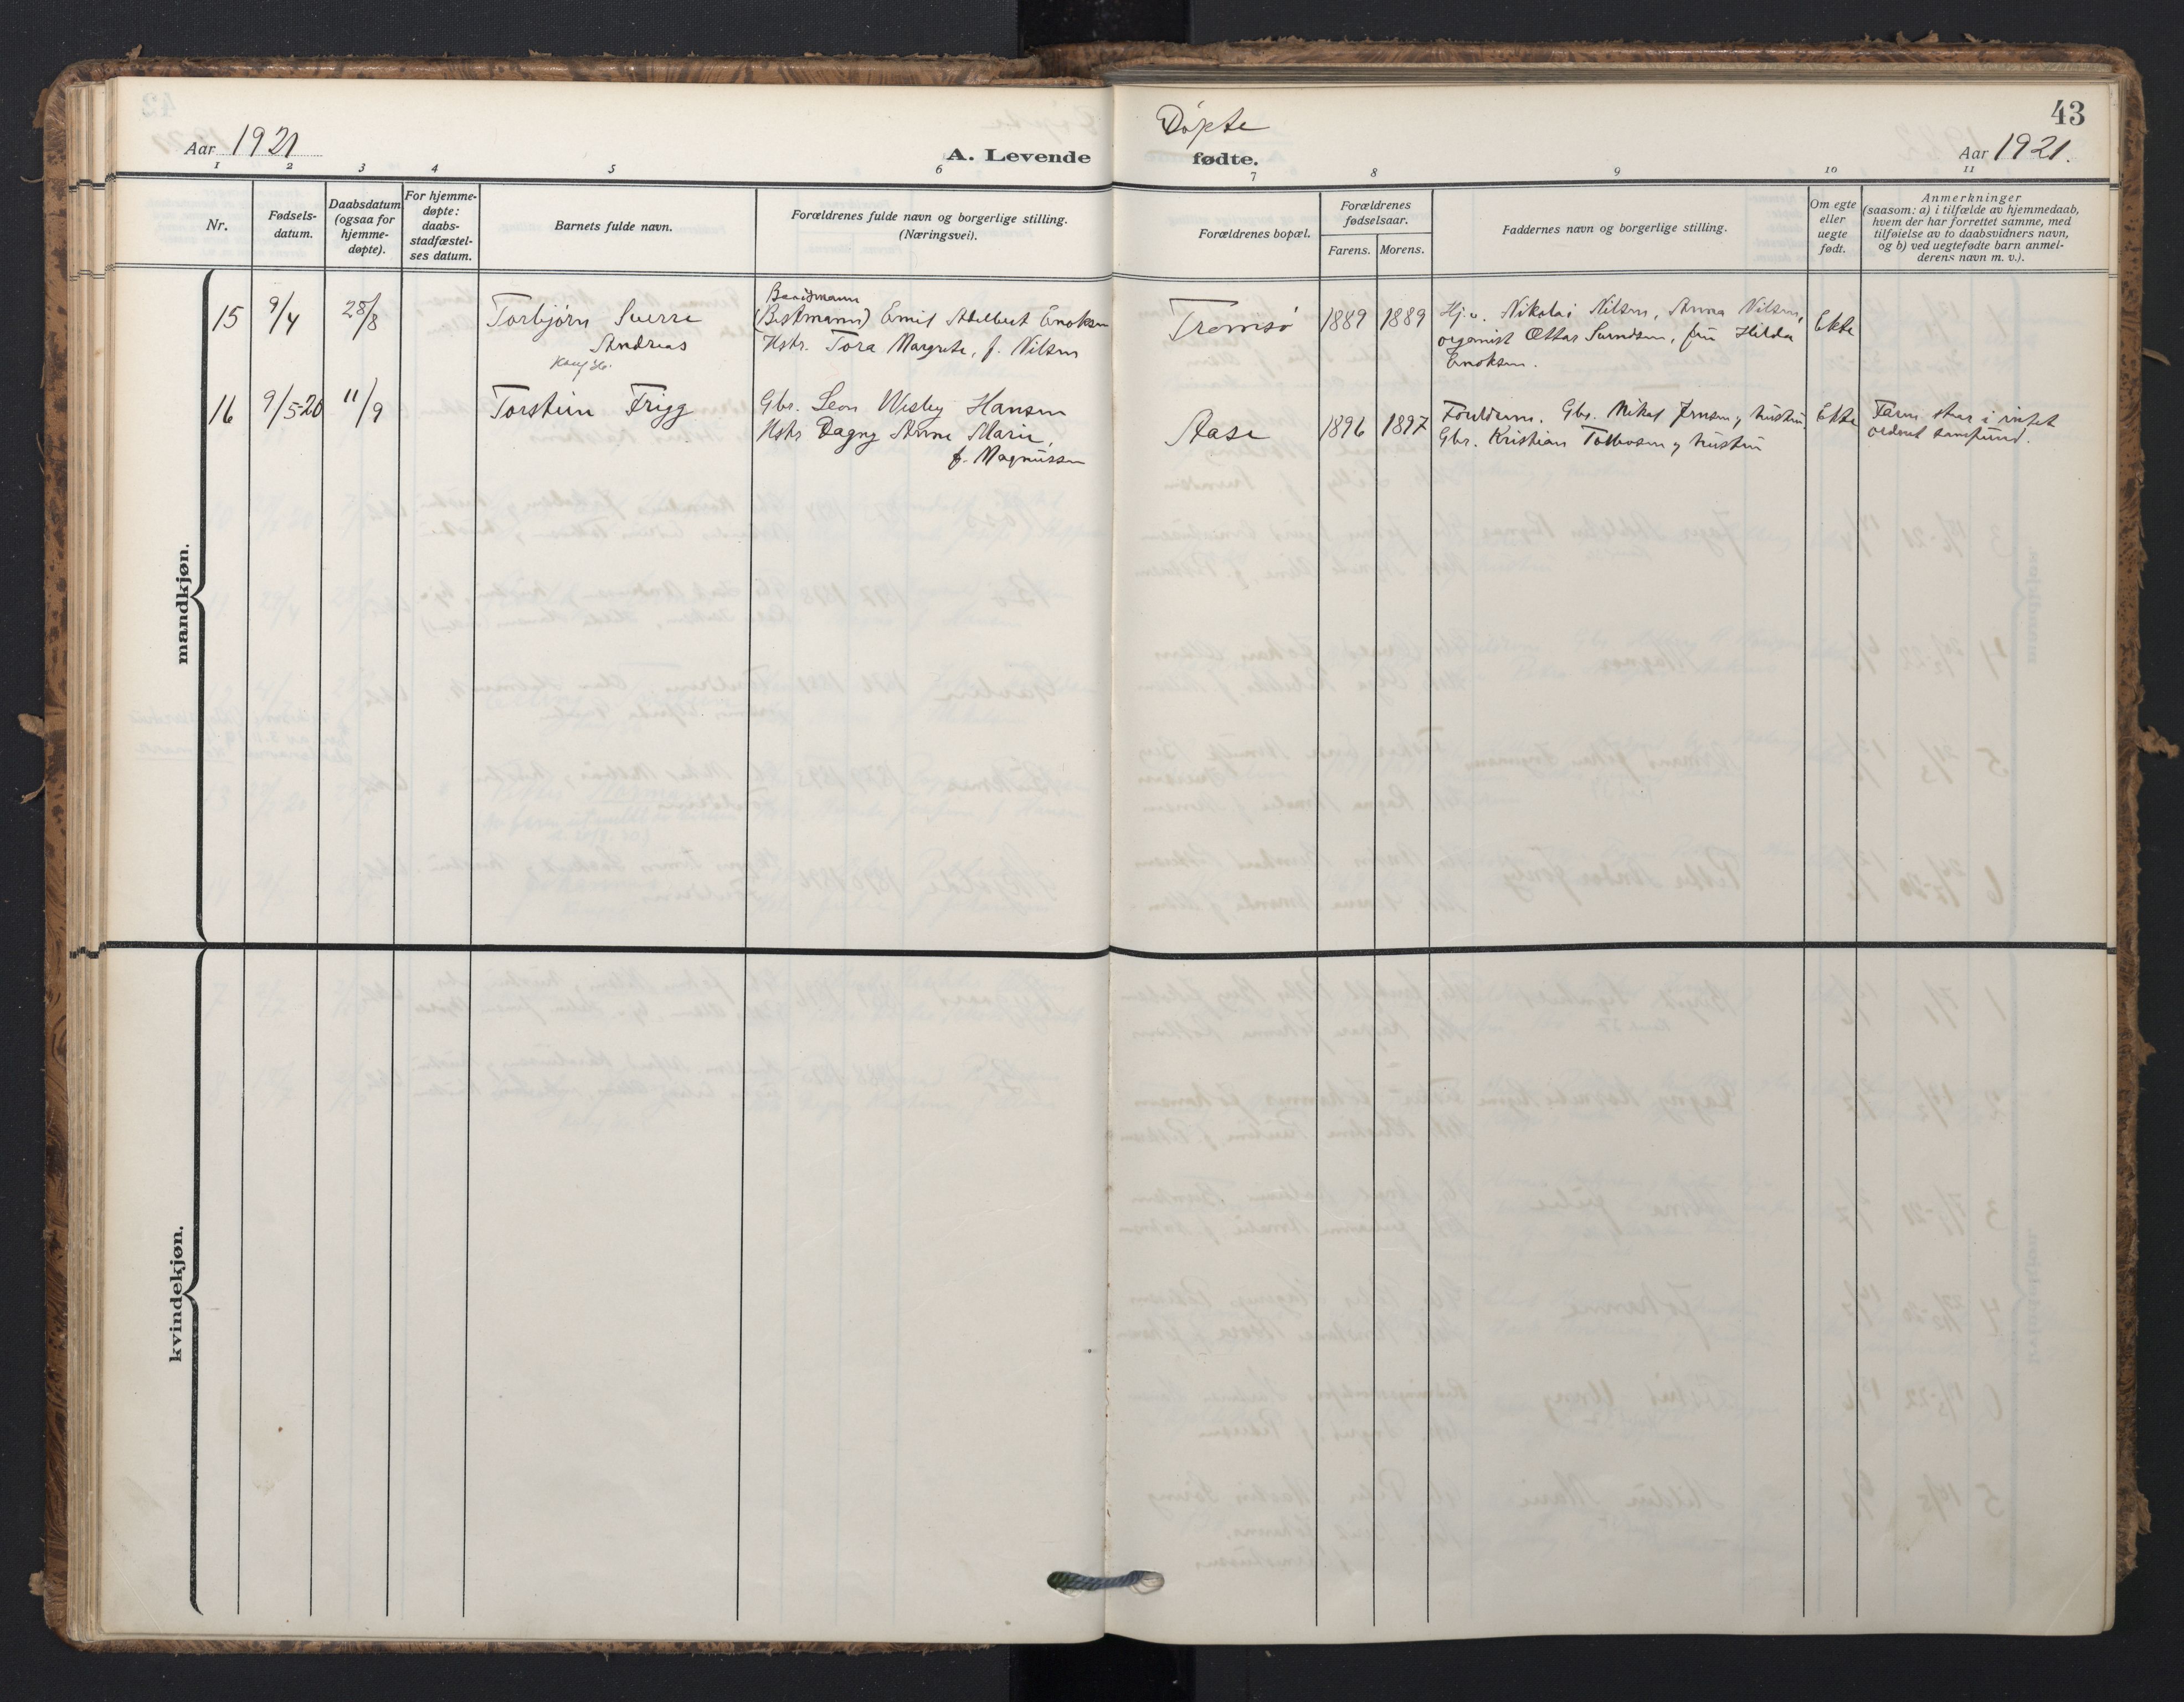 43
Døpte
Aar 1921
A. Levende fødte.
Aar 1921.
1 2 3 4 5 6 7 8 9 10 11
Nr.
Fødsels-
datum.
Daabsdatum
(ogsaa for
hjemme-
døpte).
For hjemme-
døpte:
daabs-
stadfæstel-
ses datum.
Barnets fulde navn.
Forældrenes fulde navn og borgerlige stilling.
(Næringsvei).
Forældrenes bopæl.
Forældrenes
fødselsaar.
Farens. Morens.
Faddernes navn og borgerlige stilling.
Om egte
eller
uegte
født.
Anmerkninger
(saasom: a) i tilfælde av hjemmedaab,
hvem der har forrettet samme, med
tilføielse av to daabsvidners navn,
og b) ved uegtefødte barn anmel-
derens navn m. v.).
mandkjøn.
15
9/4
28/8
Torbjørn Sverre
Andreas
Baadsmann
(Bestmann) Emil Adelbert Enoksen
Hstr. Tora Margrete, f. Nilsen
Tromsø
1889
1889
Nikolai Nilsen, Anna Nilsen,
organist Ottar Sundsen, frü Hilda
Enoksen.
Ekte
16
9/5-20
11/9
Torstein Frigg
Gbr. Leon Wisley Hansen
Hstr Dagny Anne Marie,
f. Magnussen
Aase
1896
1897
Foreldrene. Gbr. Mikal Jensen, hustru.
Gbr. Kristian Tobbosen, hustru
Ekte
Faren staar i intet
ordnet samfund.
kvindekjøn.